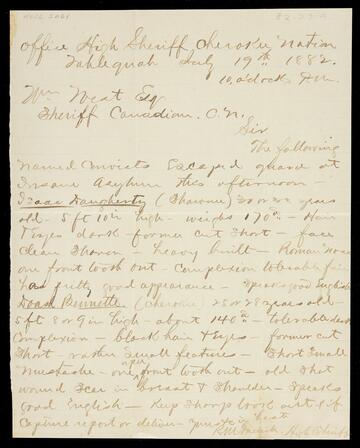 Office High Sheriff Cherokee Nation
Tahlequah July 19th 1882.
10, o'clock P.M.
Wm West Esq
Sheriff Canadian. C.N.
Sir
The following
named Convicts Escaped guard at
Insane Asylum this afternoon –
Isaac Daugherty (Shawnee) 30 or 32 years
old – 5 ft 10 in high – weighs 170 lbs – Hair
& Eyes dark – former cut Short – face
clean Shaven – heavy built – Roman nose
one front tooth out – Complexion tolerable fair
has pretty good appearance – Speaks good English
Bennette (Cherokee) 25 or 28 years old –
5 ft 8 or 9 in high – about 140 lbs – tolerable dark
Complexion – black hair & Eyes – former cut
Short – rather Small features – Short Small
Mustache – one front tooth out – old Shot
wound Scar in breast & Shoulder – Speaks
good English – Keep Sharp look out & if
Capture report or deliver –
High Sheriff